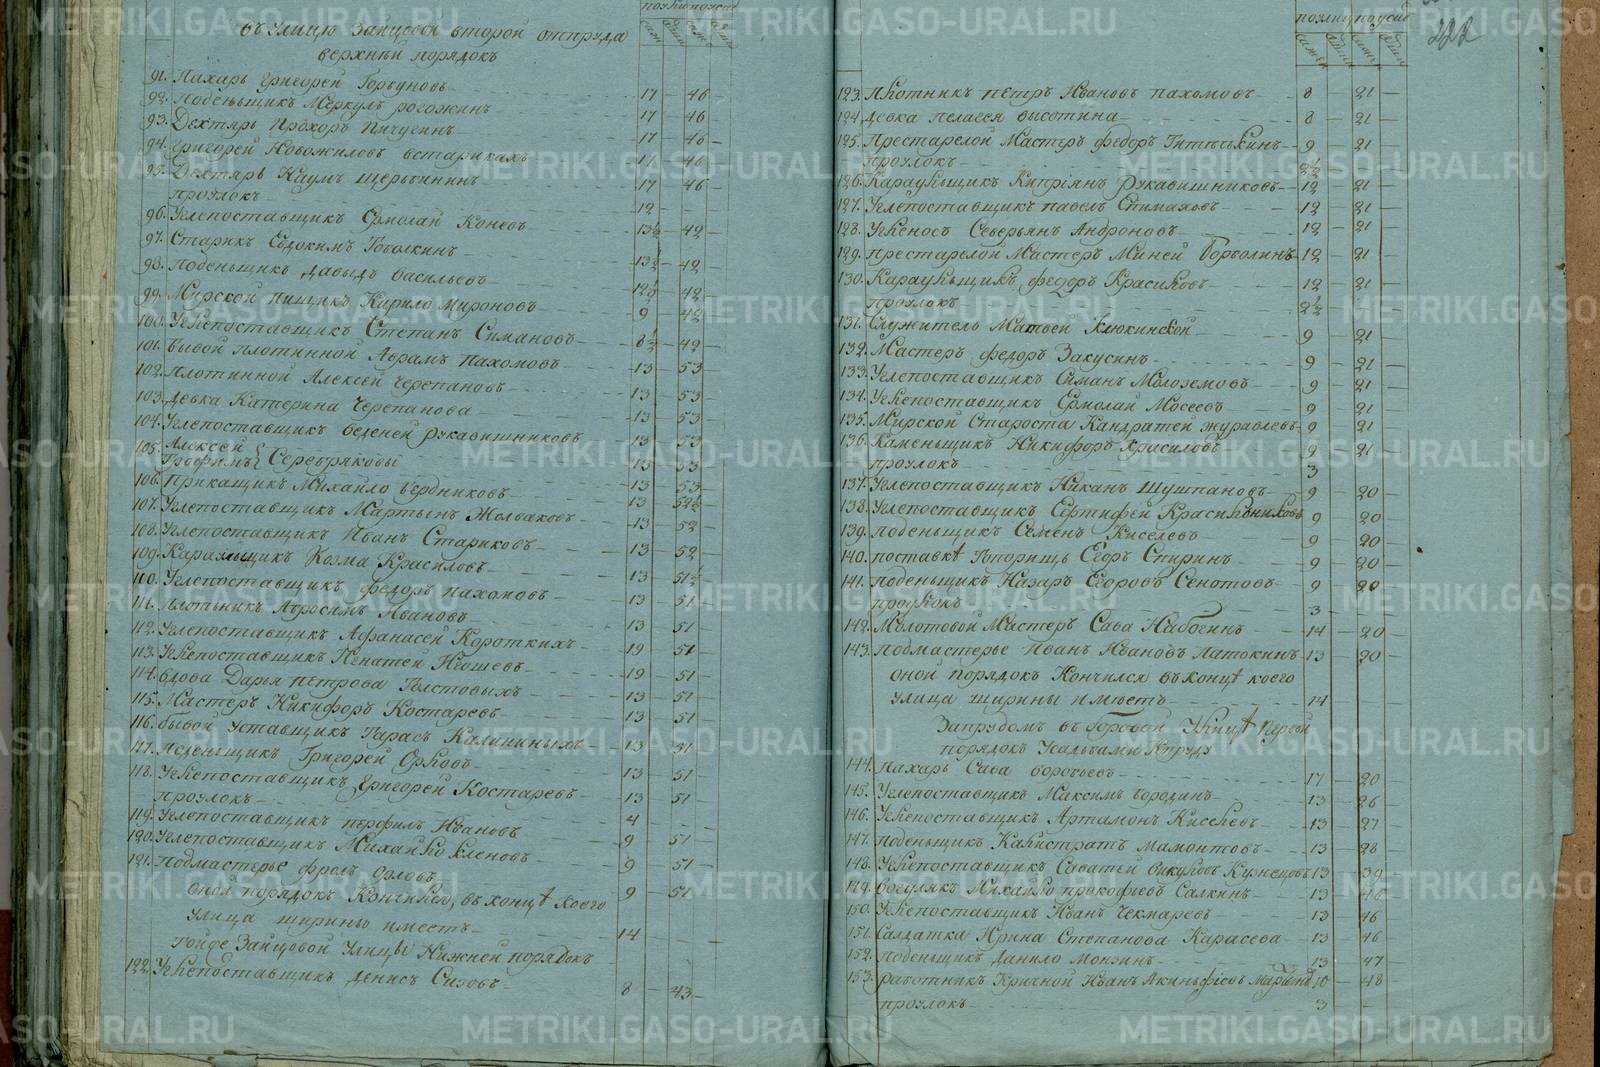 въ Улицѣ Зайцовой второй отпруда
верхней порядокъ
91. Пахарь Григорей Горбуновъ 17 46
92. Поденьщикъ Меркулъ рогожинъ 17 46
93. Дехтярь Прохоръ Пичугинъ 17 46
94. Григорей Новожиловъ встарикахъ 17 46
95. Дехтярь Наумъ Щербининъ 17 46
проулокъ 12
96. Углепоставщикъ Ермолай Коневъ 13½ 42
97. Старикъ Евдокимъ 13½ 42
98. Поденьщикъ давыдъ васильевъ 12½ 42
99. Мирской пищикъ Кирило мироновъ 9 42
100. Углепоставщикъ Степанъ Симановъ 8½ 42
101. бывой плотинной Абрамъ Пахомовъ 13 53
102. Плотинной Алексей Черепановъ 13 53
103. девка Катерина Черепанова 13 53
104. Углепоставщикъ веденей рукавишниковъ 13 53
105. Алексей
Трофимъ } Серебряковы 13 53
106. Прикащикъ Михайло бердниковъ 13 53
107. Углепоставщикъ Мартынъ Жолваковъ 13 52½
108. Углепоставщикъ Иванъ Стариковъ 13 52
109. Караульщикъ Козма Красиловъ 13 52
110. Углепоставщикъ федоръ пахомовъ 13 51½
111. плотникъ Абросимъ Ивановъ 13 51
112. Углепоставщикъ Афанасей Короткихъ 13 51
113. Углепоставщикъ Игнатей 19 51
114. вдова Дарья петрова Толстовыхъ 19 51
115. Мастеръ Никифоръ Костаревъ 13 51
116. бывой Уставщикъ Тарасъ Калининыхъ 13 51
117. поденьщикъ Григорей Орловъ 13 51
118. Углепоставщикъ Григорей Костаревъ 13 51
проулокъ 4
119. Углепоставщикъ перфилъ Ивановъ 9 51
120. Углепоставщикъ Михайло кленовъ 9 51
121. Подмастерье фролъ Орловъ 9 51
оной порядокъ Кончился, въ концѣ коего
улица ширины имеетъ 14
Тойже Зайцовой Улицы Нижней порядокъ
122. Углепоставщикъ денисъ Сизовъ 8 43
222
123. плотникъ петръ Ивановъ пахомовъ 8 21
124. девка пелагея высотина 8 21
125. Престарелой Мастеръ федоръ 9 21
проулокъ 2½
126. Караульщикъ Киприянъ Рукавишниковъ 12 21
127. Углепоставщикъ павелъ Епимаховъ 12 21
128. Угленосъ Северьянъ Андроновъ 12 21
129. престарелой Мастеръ Миней 12 21
130. Караульщикъ федоръ Красиковъ 12 21
проулокъ 2½
131. Служитель Матвей Клюкинской 9 21
132. Мастеръ федоръ Закусинъ 9 21
133. Углепоставщикъ Симанъ Молоземовъ 9 21
134. Углепоставщикъ Ермолай Мосеевъ 9 21
135. Мирской Староста Кандратей журавлевъ 9 21
136. Каменьщикъ Никифоръ Красиловъ 9 21
проулокъ 3
137. Углепоставщикъ Никанъ Шуштановъ 9 20
138. Углепоставщикъ Красильниковъ 9 20
139. поденьщикъ Семенъ Киселевъ 9 20
140. поставки Егоръ Спиринъ 9 20
141. поденьщикъ Назаръ 9 20
проулокъ 3
142. Молотовой Мастеръ Сава Набогинъ 14 20
143. Подмастерье Иванъ Ивановъ Латокинъ 13 20
оной порядокъ Кончился въ концѣ коего
улица ширины имѣетъ 14
Запрудомъ въ Улицѣ первой
порядокъ Усадьбами Кпруду
144. Пахарь Сава воробьевъ 17 20
145. Углепоставщикъ Максимъ бородинъ 13 26
146. Углепоставщикъ Артамонъ Киселевъ 13 27
147. поденьщикъ Калистратъ мамонтовъ 13 28
148. Углепоставщикъ Саватей викуловъ Кузнецовъ 13 39
149. Михайло прокофьевъ Салкинъ 13 46
150. Углепоставщикъ Иванъ Чекмаревъ 13 46
151. Салдатка Ирина Степанова Карасева 13 46
152. поденьщикъ данило Монзинъ 13 47
153. работникъ Кричной Иванъ Акинфиевъ 10 48
проулокъ 3
METRIKI.GASO-URAL.RU